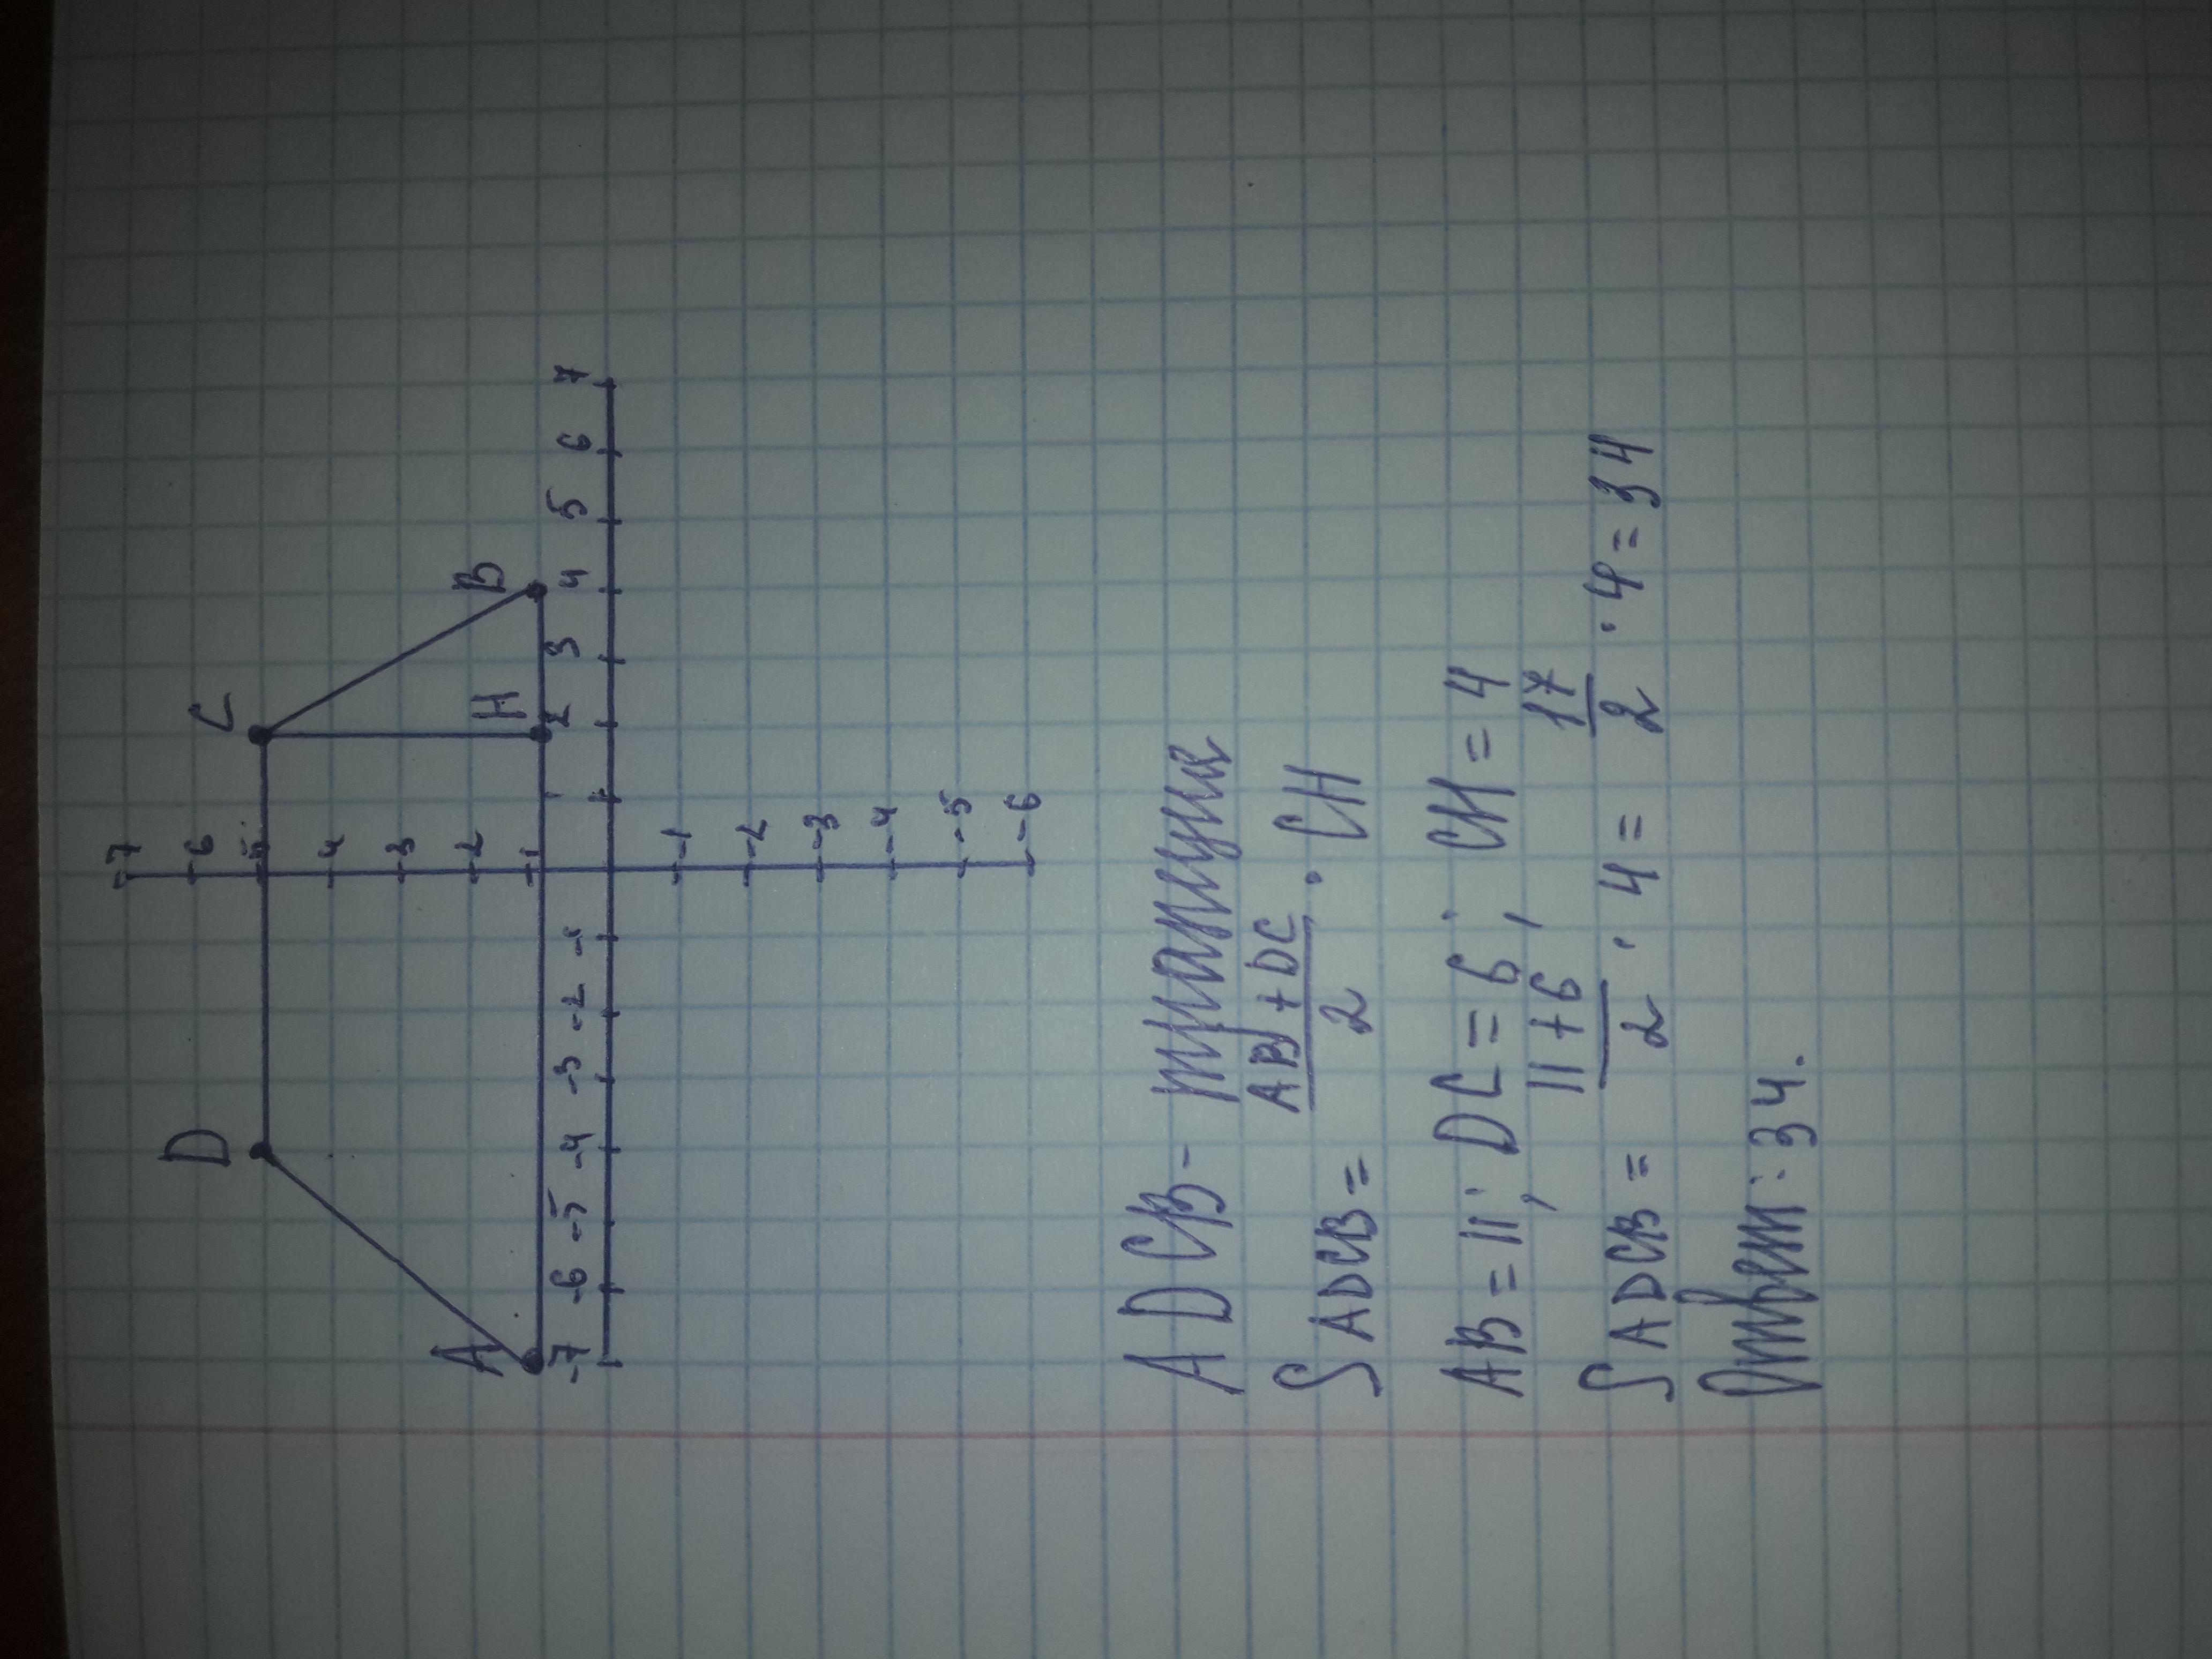 7
6
5
4
3
2
1
D
C
A
H
B
-7 -6 -5 -4 -3 -2 -1 1 2 3 4 5 6 7
-1
-2
-3
-4
-5
-6
ADCB - трапеция
SADCB = (AB + DC)/2 · CH
AB = 11; DC = 6; CH = 4
SADCB = (11+6)/2 · 4 = 17/2 · 4 = 34
Ответ: 34.